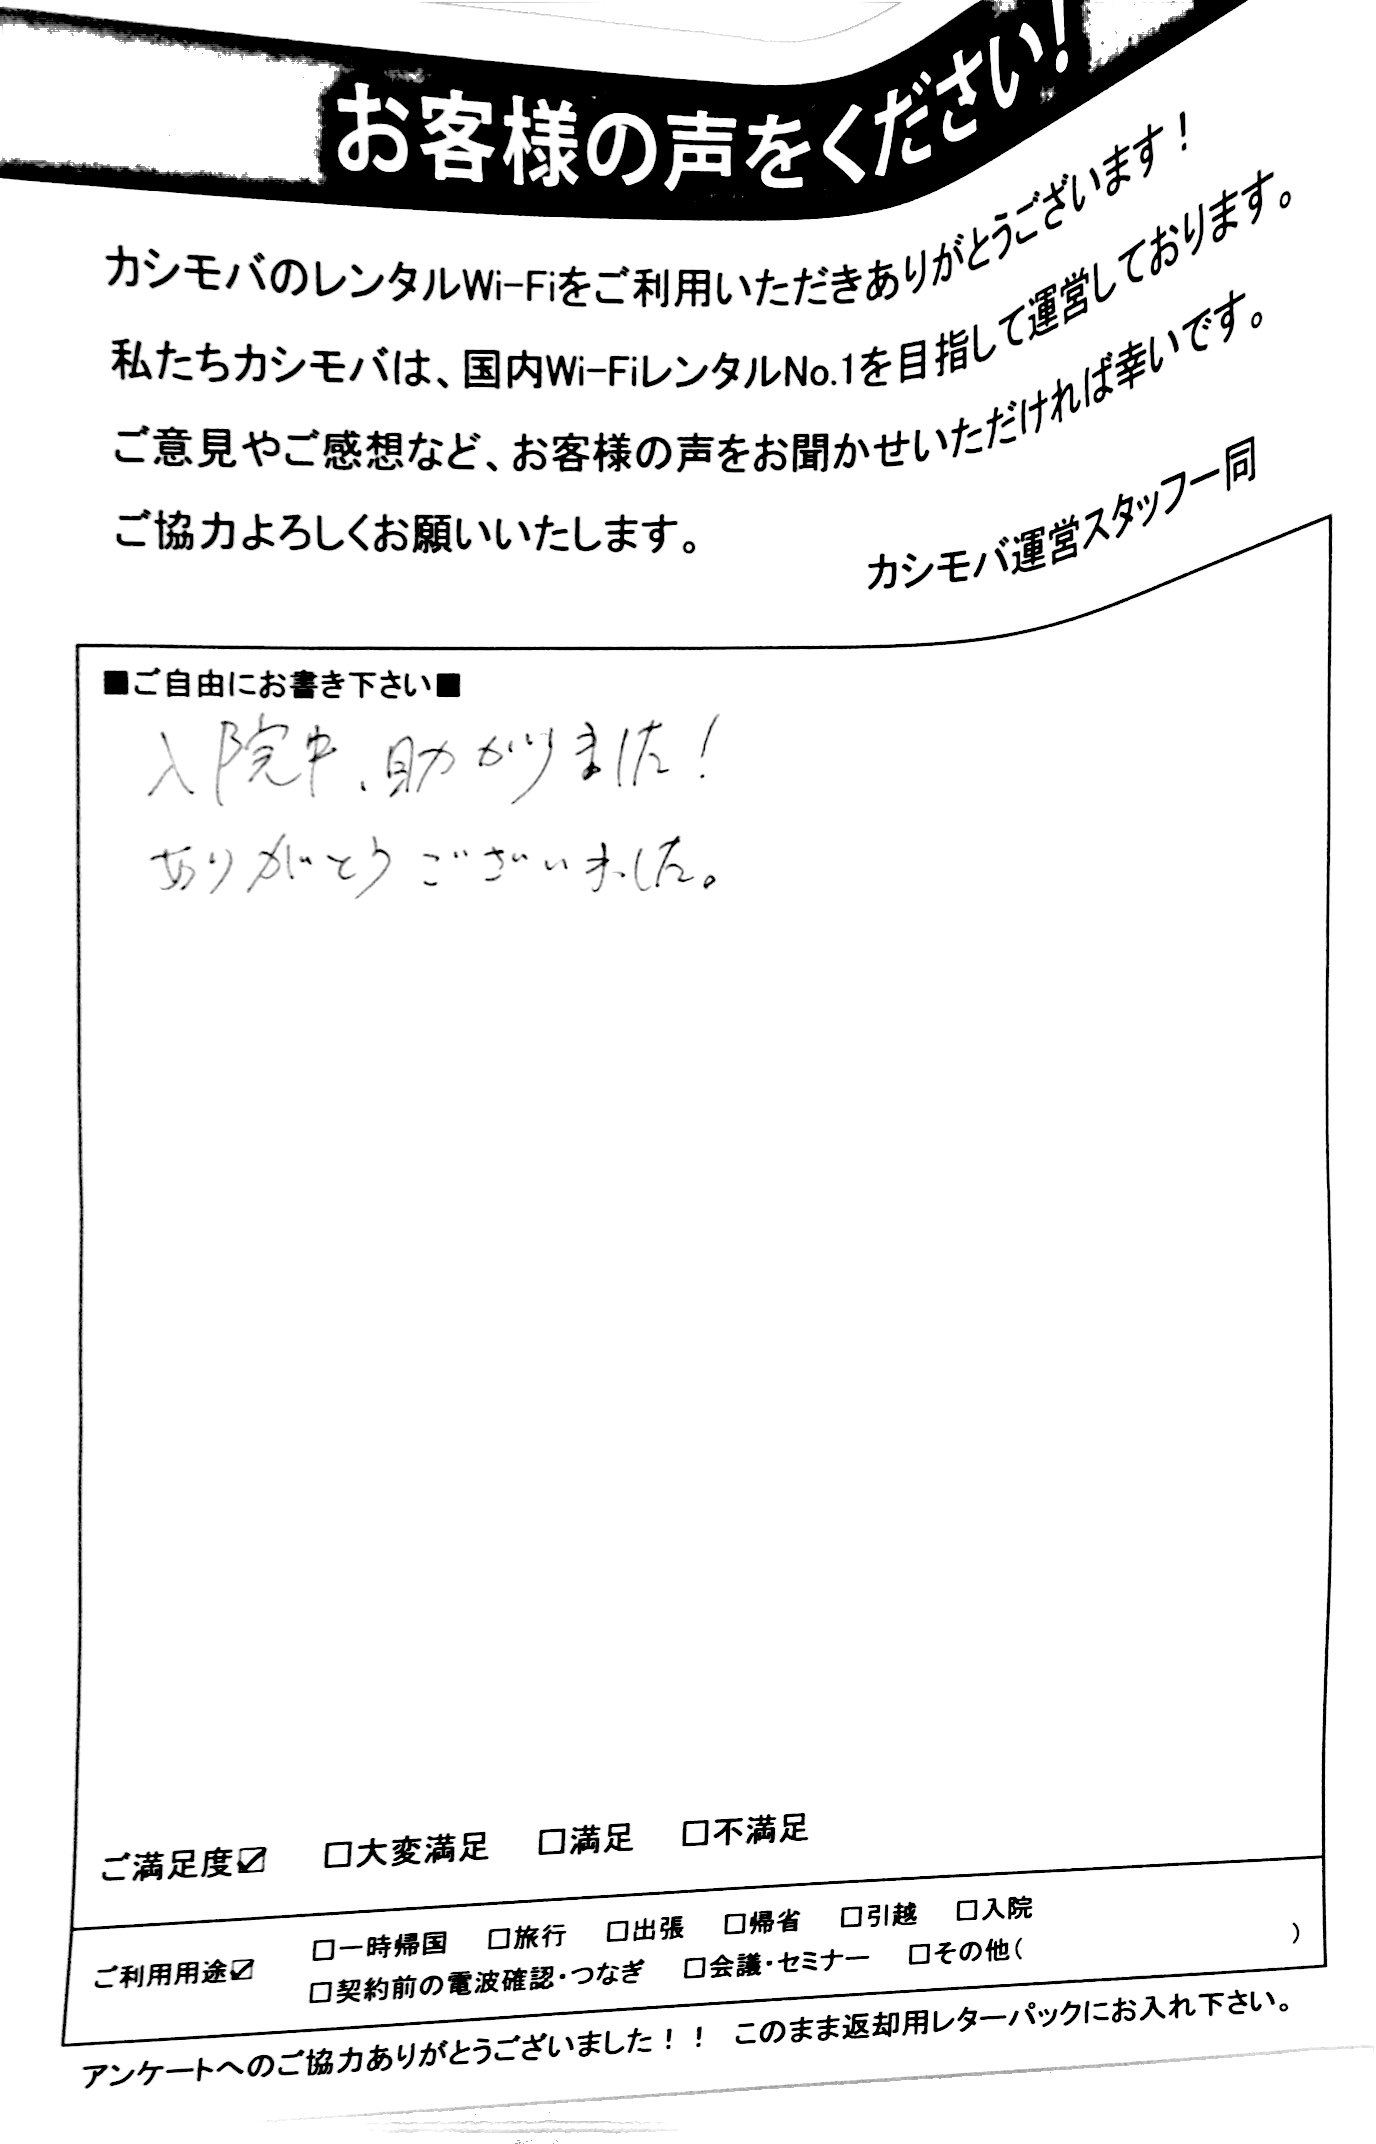 お客様の声をください!
カシモバのレンタルWi-Fiをご利用いただきありがとうございます!
私たちカシモバは、国内Wi-FiレンタルNo.1を目指して運営しております。
ご意見やご感想など、お客様の声をお聞かせいただければ幸いです。
ご協力よろしくお願いいたします。
カシモバ運営スタッフ一同
■ご自由にお書き下さい■
入院中、助かりました!
ありがとうございました。
ご満足度☑ □大変満足 □満足 □不満足
ご利用用途☑ □一時帰国 □旅行 □出張 □帰省 □引越 □入院
□契約前の電波確認・つなぎ □会議・セミナー □その他( )
アンケートへのご協力ありがとうございました!! このまま返却用レターパックにお入れ下さい。